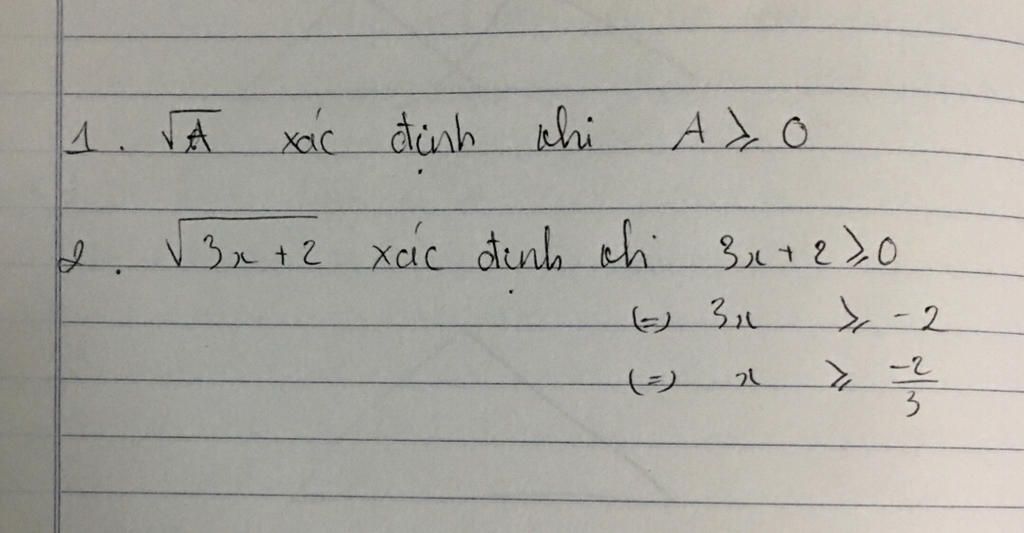 1. √A xác định khi A ⩾ 0
2. √(3x + 2) xác định khi 3x + 2 ⩾ 0
(=) 3x ⩾ -2
(=) x ⩾ -2/3